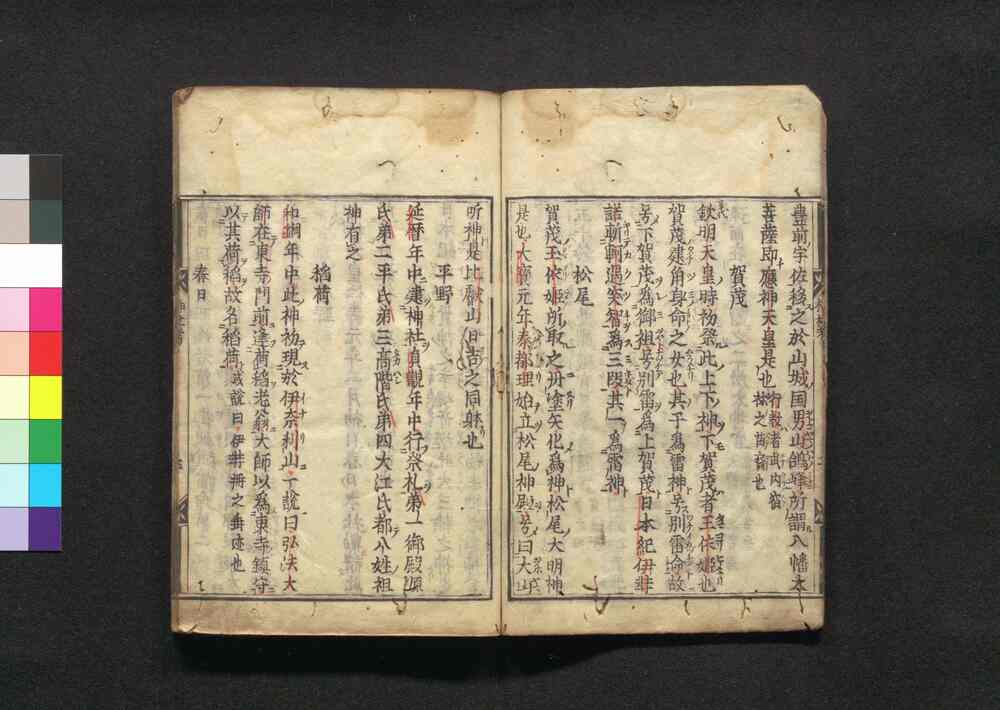 豊前宇佐移之於山城国男山鴿峰所謂八幡大
菩薩即應神天皇是也 行教者武内宿
祢之苗裔也
賀茂
欽明天皇時初祭此上下神下賀茂者玉依姫也
賀茂建角身命之女也其子為雷神号別雷故
号下賀茂為御祖号別雷為上賀茂日本紀伊弉
諾斬軻遇突智為三段其一為雷神
松尾
賀茂玉依姫所取之丹塗矢化為神松尾大明神
是也大寶元年秦都理始立松尾神殿号曰大山
咋神是比叡山日吉之同躰也
平野
延暦年中建神社貞観年中行祭礼第一御殿源
氏第二平氏第三高階氏第四大江氏都八姓祖
神有之
稲荷
和銅年中此神初現於伊奈利山一説曰弘法大
師在東寺門前逢荷稲老翁大師以為東寺鎮守
以其荷稲故名稲荷 或説曰伊弉冊之垂迹也
春日